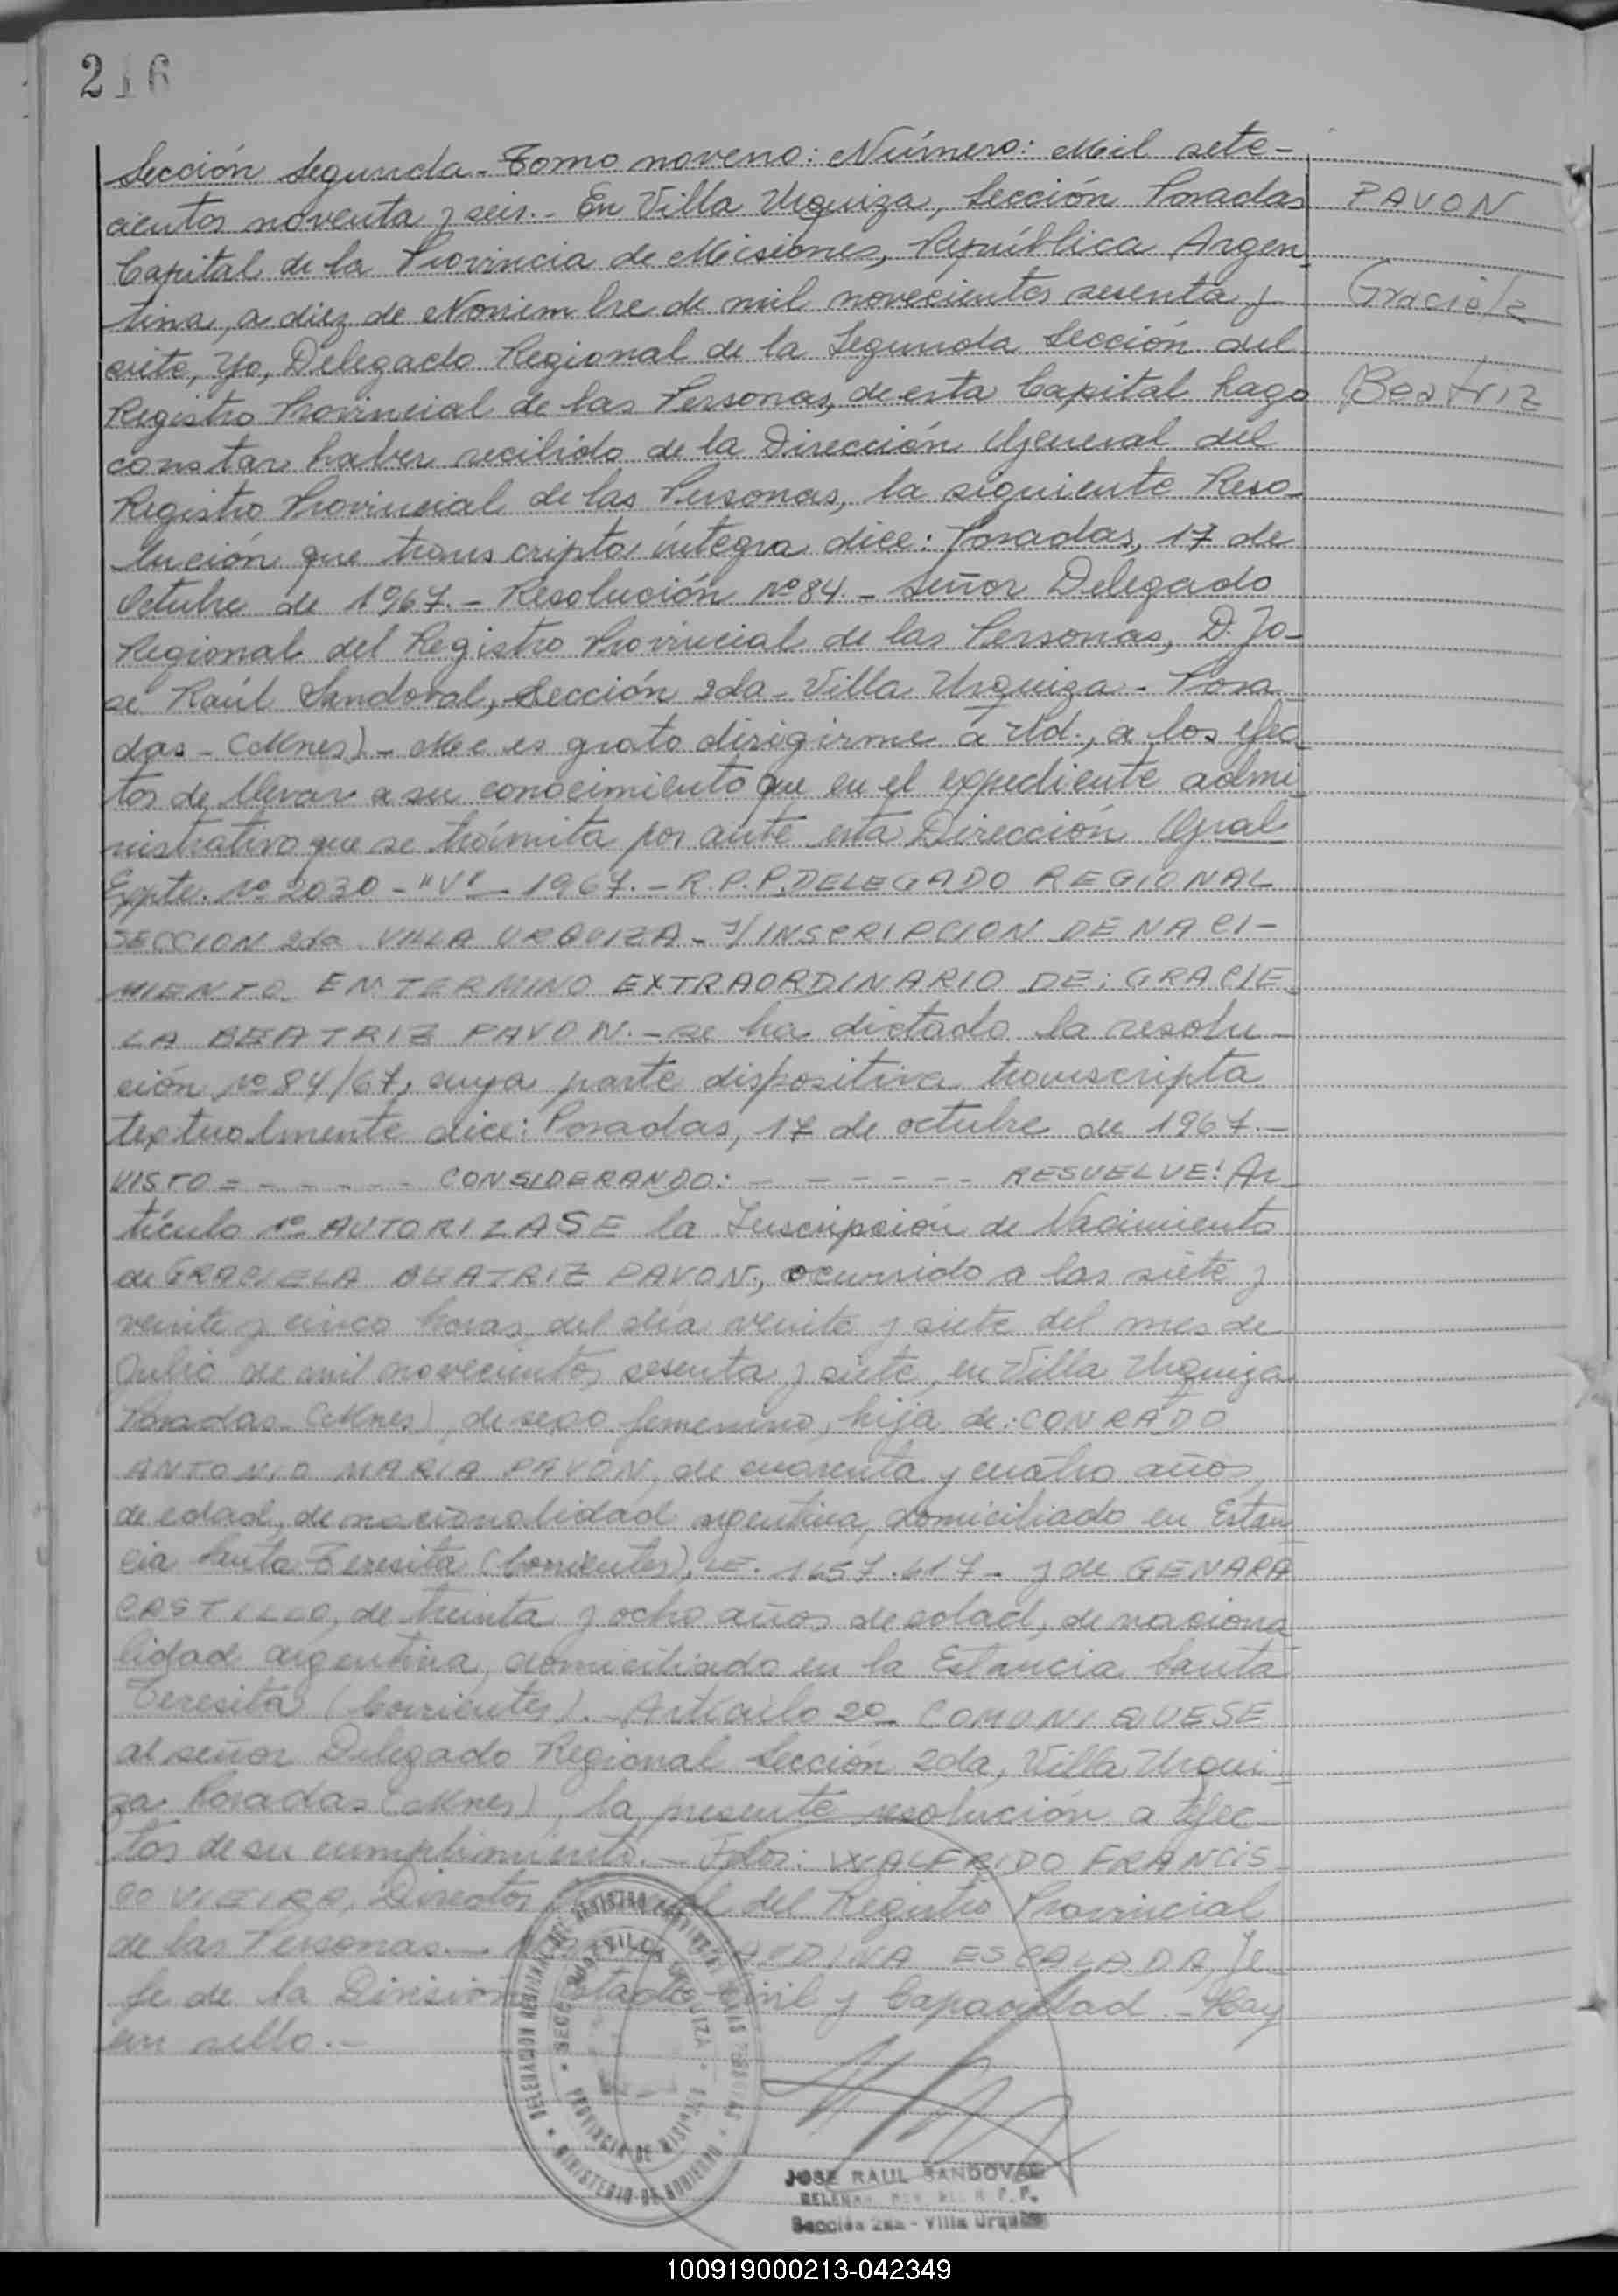 216
Sección Segunda - Tomo noveno: Número: Mil sete-
cientos noventa y seis.- En Villa Urquiza, Sección Posadas
Capital de la Provincia de Misiones, República Argen-
tina, a diez de Noviembre de mil novecientos sesenta y
siete, Yo, Delegado Regional de la Segunda Sección del
Registro Provincial de las Personas, de esta Capital hago
constar haber recibido de la Dirección General del
Registro Provincial de las Personas, la siguiente Reso-
lución que transcripta íntegra dice: Posadas, 17 de
Octubre de 1967.- Resolución Nº 84.- Señor Delegado
Regional del Registro Provincial de las Personas, D. Jo-
sé Raúl Sandoval, Sección 2da - Villa Urquiza - Posa
das - (Mnes) - Me es grato dirigirme a Ud., a los efec-
tos de llevar a su conocimiento que en el expediente admi-
nistrativo que se trámita por ante esta Dirección Gral
Expte. Nº 2030 - "V" - 1967.- R.P.P. DELEGADO REGIONAL
SECCION 2da VILLA URQUIZA - S/ INSCRIPCION DE NACI-
MIENTO EN TERMINO EXTRAORDINARIO DE: GRACIE-
LA BEATRIZ PAVON.- se ha dictado la resolu-
ción Nº 84/67, cuya parte dispositiva transcripta
textualmente dice: Posadas, 17 de octubre de 1967.-
VISTO = - - - - - - CONSIDERANDO: - - - - - - - RESUELVE: Ar-
tículo 1º AUTORIZASE la Inscripción de Nacimiento
de GRACIELA BEATRIZ PAVON, ocurrido a las siete y
veinte y cinco horas, del día veinte y siete del mes de
Julio de mil novecientos sesenta y siete, en Villa Urquiza
Posadas (Mnes), de sexo femenino, hija de: CONRADO
ANTONIO MARIA PAVON, de cuarenta y cuatro años,
de edad, de nacionalidad argentina, domiciliado en Estan
cia Santa Teresita (Corrientes), LE. 1.657.617 - y de GENARA
CASTILLO, de treinta y ocho años de edad, de naciona
lidad argentina, domiciliado en la Estancia Santa
Teresita (Corrientes).- Artículo 2º COMUNIQUESE
al señor Delegado Regional Sección 2da, Villa Urqui-
za Posadas (Mnes), la presente resolución a efec-
tos de su cumplimiento.- Fdos: WALFRIDO FRANCIS-
CO VIEIRA, Director General del Registro Provincial
de las Personas.- ESCALADA, Je-
fe de la División Estado Civil y Capacidad - Hay
un sello.-
PAVON
Graciela
Beatriz
DELEGACION REGIONAL DEL REGISTRO PROVINCIAL DE LAS PERSONAS
MINISTERIO DE GOBIERNO
SECC. 2da VILLA URQUIZA
PROVINCIA DE MISIONES
JOSE RAUL SANDOVAL
R. P. P.
Sección 2da - Villa Urquiza
100919000213-042349